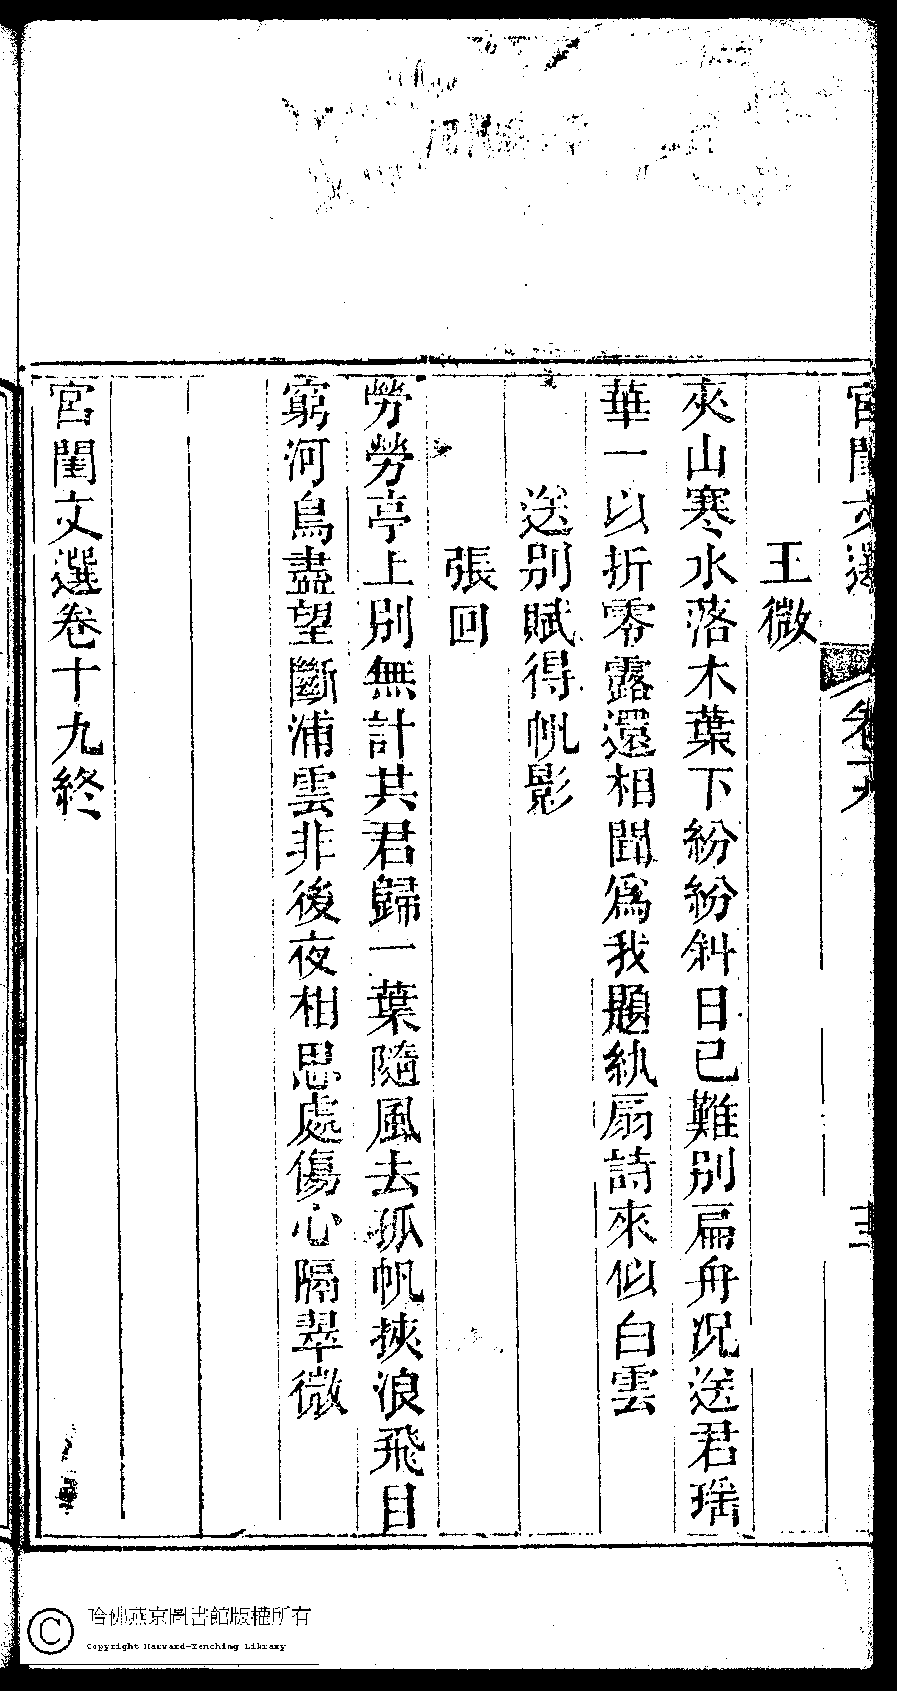 宮閨文選 卷十九
王微
夾山寒水落木葉下紛紛斜日已難別扁舟况送君瑶
華一以折零露還相聞爲我題紈扇詩來似白雲
送別賦得帆影
張回
勞勞亭上別無計共君歸一葉隨風去孤帆挾浪飛目
窮河鳥盡望斷浦雲非後夜相思處傷心隔翠微
宮閨文選卷十九終
哈佛燕京圖書館版權所有
Copyright Harvard-Yenching Library